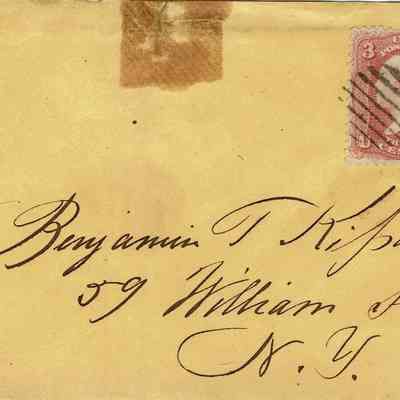 3
Benjamin T Kissa
59 William S
N. Y.